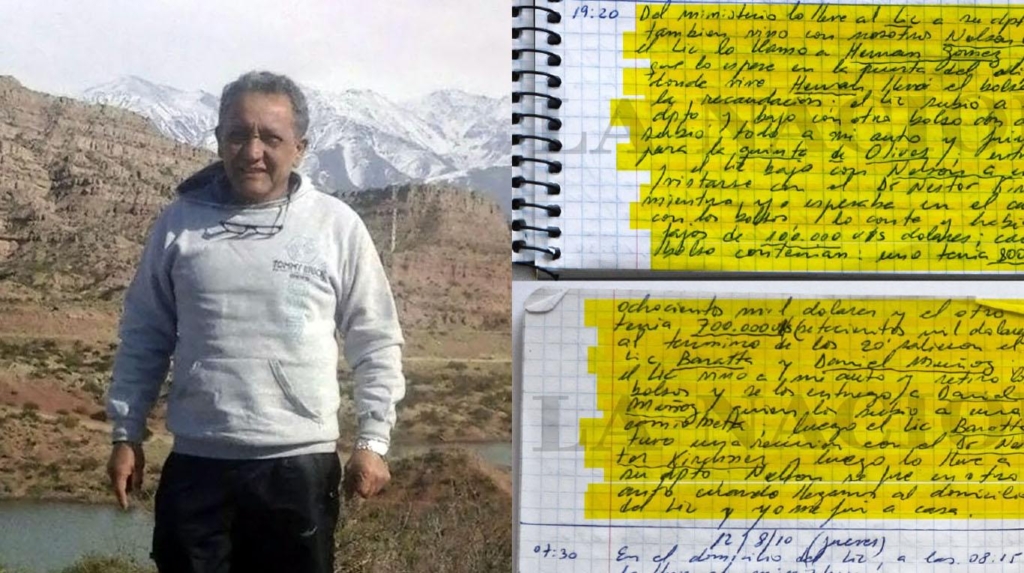 TOMMY STOCK
19:20 Del ministerio lo lleve al Lic a su dpto
tambien vino con nosotros Nelson
el Lic lo llamo a Hernan Gomez
que lo espere en la puerta del
donde vive Hernan llevó el bolso
la recaudación: el Lic subio a
dpto y bajo con otro bolso con
subio todo a mi auto y
para la quinta de Olivos y
el Lic bajo con Nelson a
en el Dr Nestor
mientras yo esperaba en el
con los bolsos lo conte y habi
fajos de 100.000 U$S dolares, cada
bolso contenian: uno tenia 800
LA NACION
ochociento mil dolares y el otro
tenia 700.000 U$S (setecientos mil dolares
al termino de los 20' salieron el
Lic Baratta y Daniel Muñoz
el Lic vino a mi auto y retiro
bolsos y se los entrego a Daniel
Muñoz quien los subio a una
camioneta; luego el Lic Baratta
tuvo una reunion con el Dr Nes
tor Kirchner, luego lo lleve a
su dpto Nelson se fue en otro
auto cuando llegamos al domicilio
del Lic y yo me fui a casa.
LA NACION
12/8/10 (jueves)
07:30 En el domicilio del Lic, a las 08.15